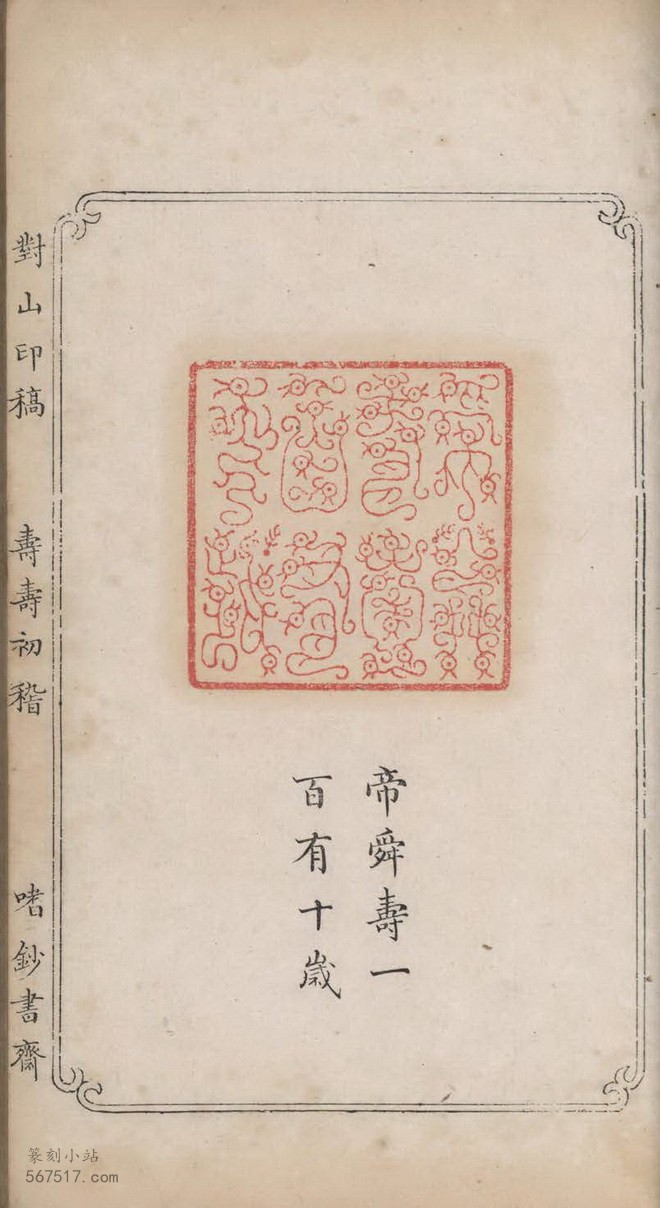 帝舜壽一
百有十歲
對山印稿 壽壽初稽 嗜鈔書齋
篆刻小站
567517.com